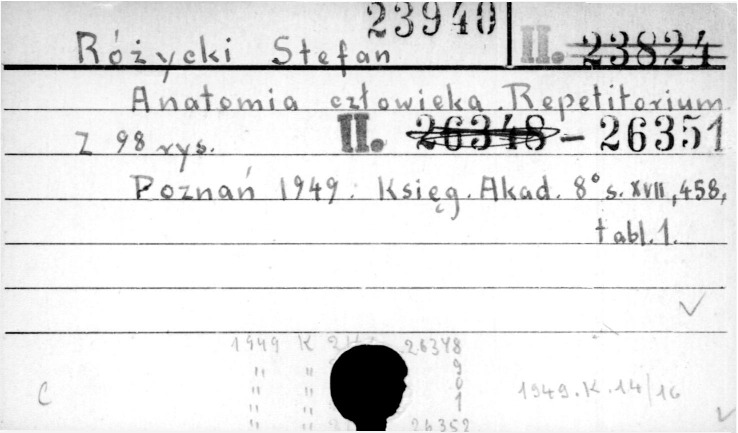 23940
Różycki Stefan II. 23824
Anatomia człowieka. Repetitorium
Z 98 rys. II. 26348 - 26351
Poznań 1949. Księg. Akad. 8° s. XVII, 458,
tabl. 1.
1949 K 26348
" " 9
" " 0
C " " 1 1949.K.14/16
" " 26352